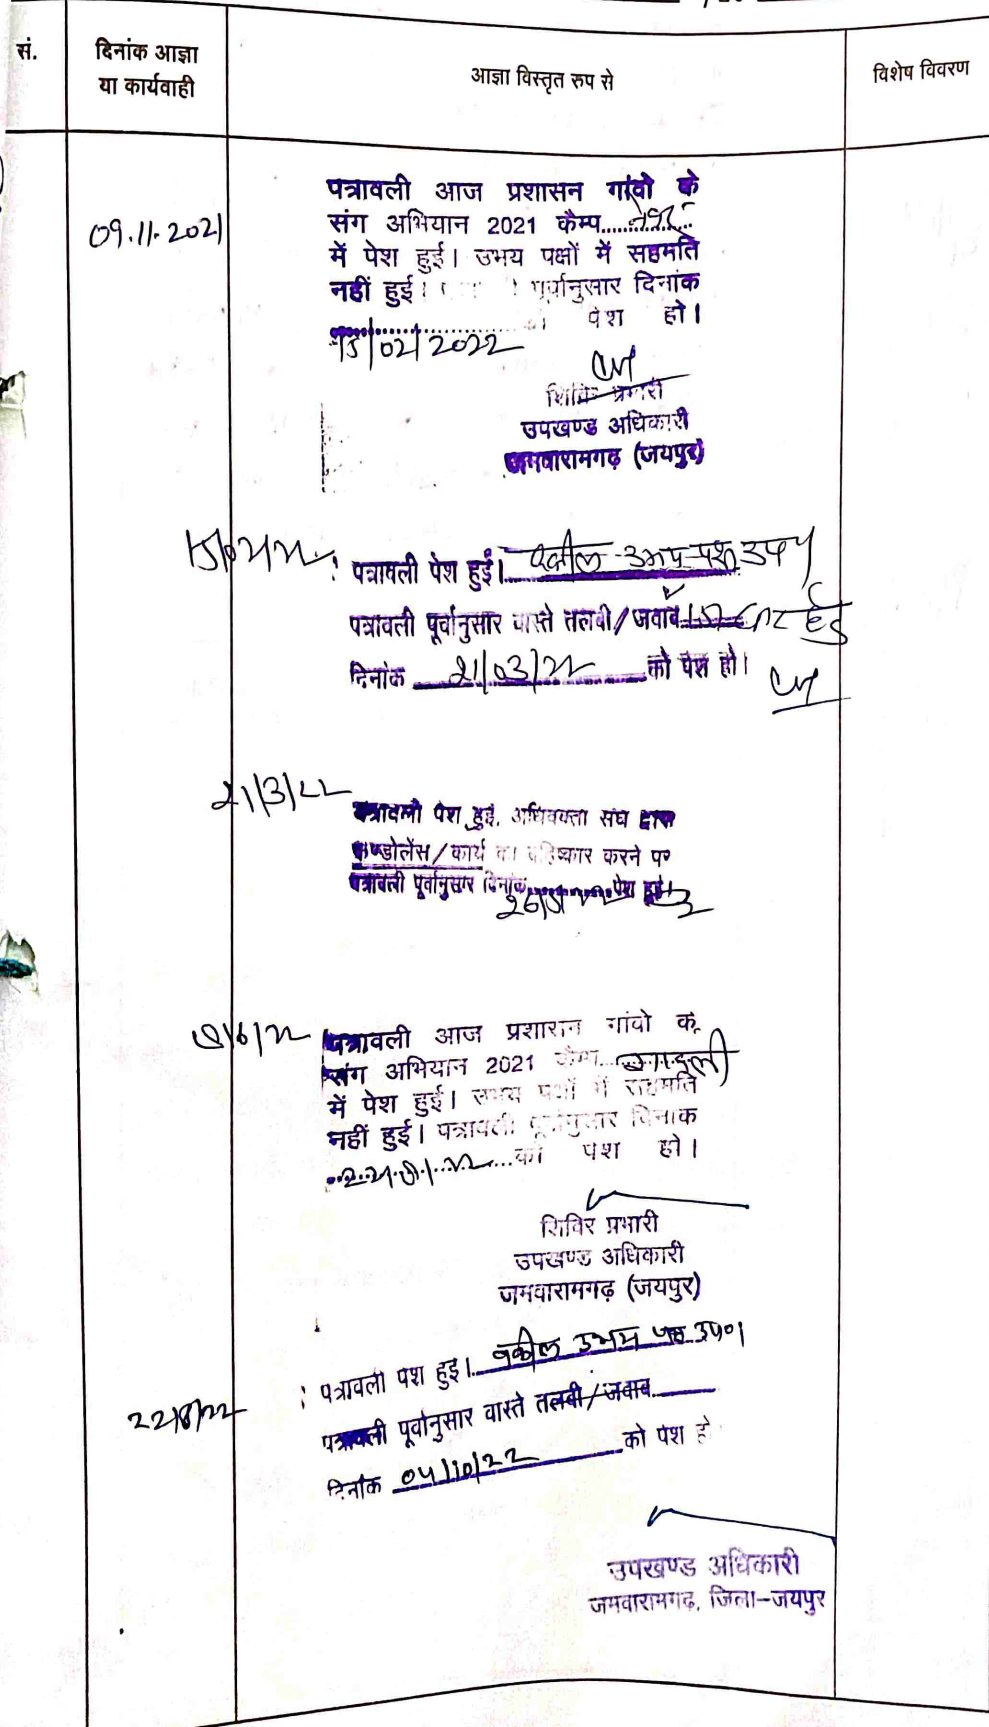 सं.
दिनांक आज्ञा
या कार्यवाही
आज्ञा विस्तृत रुप से
विशेष विवरण
09.11.2021
पत्रावली आज प्रशासन गांवो के
संग अभियान 2021 कैम्प
में पेश हुई। उभय पक्षों में सहमति
नहीं हुई। पूर्वानुसार दिनांक
पेश हो।
15/02/2022
शिविर प्रभारी
उपखण्ड अधिकारी
जमवारामगढ़ (जयपुर)
पत्रावली पेश हुई। वकील उभय पक्ष उप
पत्रावली पूर्वानुसार वास्ते तलबी/जवाब
दिनांक 21/03/22 को पेश हो।
21/3/22
पत्रावली पेश हुई, अधिवक्ता संघ द्वारा
कण्डोलेंस/कार्य का बहिष्कार करने पर
पत्रावली पूर्वानुसार दिनांक पेश हुई।
पत्रावली आज प्रशासन गांवो के
संग अभियान 2021 कैम्प
में पेश हुई। उभय पक्षों में सहमति
नहीं हुई। पत्रावली पूर्वानुसार दिनांक
को पेश हो।
शिविर प्रभारी
उपखण्ड अधिकारी
जमवारामगढ़ (जयपुर)
22/8/22
पत्रावली पेश हुई। वकील उभय पक्ष उप०।
पत्रावली पूर्वानुसार वास्ते तलबी/जवाब
दिनांक 04/10/22 को पेश हो
उपखण्ड अधिकारी
जमवारामगढ़, जिला-जयपुर